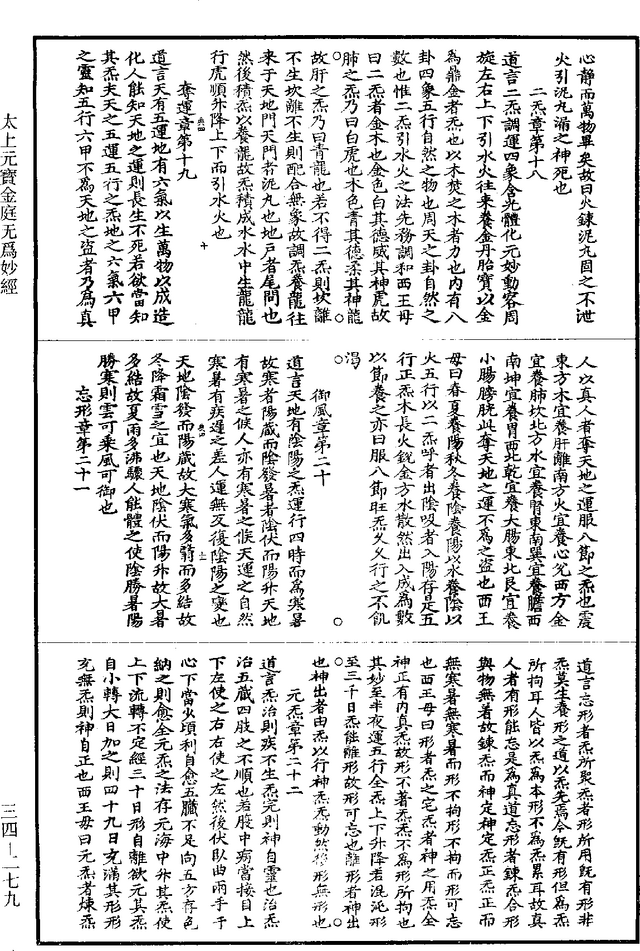 太上元寶金庭无爲妙經
心靜而萬物畢矣故曰火鍊泥丸固之不泄
火引泥丸漏之神死也
二炁章第十八
道言二炁調運四象含光體化元妙動容周
旋左右上下引水火往來養金丹胎寶以金
為鼎金者炁也以木焚之木者力也内有八
卦四象五行自然之物也周天之卦自然之
數也惟二炁引水火之法先務調和西王母
曰二炁者金木也金色白其德威其神虎故
肺之炁乃曰白虎也木色青其德柔其神龍
故肝之炁乃曰青龍也若不得二炁則坎離
不生坎離不生則配合無象故調炁養龍往
來于天地門天門者泥丸也地戸者尾閭也
然後積炁以養龍故炁積成水水中生龍龍
行虎順升降上下而引水火也
奪運章第十九
道言天有五運地有六氣以生萬物以成造
化人能知天地之運則長生不死若欲當知
其炁夫天之五運五行之炁地之六氣六甲
之靈知五行六甲不為天地之盜者乃爲真
人以真人者奪天地之運服八節之炁也震
東方木宜養肝離南方火宜養心兊西方金
宜養肺坎北方水宜養腎東南巽宜養膽西
南坤宜養胃西北乾宜養大腸東北艮宜養
小腸膀胱此奪天地之運不為之盜也西王
母曰春夏養陽秋冬養陰養陽以水養陰以
火五行以二炁呼者出陰吸者入陽存是五
行正炁木長火銳金方水散然出入成為數
以節養之亦曰服八節旺炁久久行之不飢
渴
御風章第二十
道言天地有陰陽之炁運行四時而為寒暑
故寒者陽藏而陰發暑者陰伏而陽升天地
有寒暑之候人亦有寒暑之候天運之自然
寒暑有疾遲之差人運無反復陰陽之變也
天地陰發而陽藏故大寒氣多翳而多結故
冬降霜雪之宜也天地陰伏而陽升故大暑
多結故夏雨多沛驟人能體之使陰勝暑陽
勝寒則雲可乘風可御也
忘形章第二十一
道言忘形者炁所聚炁者形所用既有形非
炁莫生養形之道以炁先焉今既有形但為炁
所拘耳人皆以炁為本形不為炁累耳故真
人者有形能忘是為真道忘形者鍊炁合形
與物無着故鍊炁而神定神定炁正炁正而
無寒暑無寒暑而形不拘形不拘而形可忘
也西王母曰形者炁之宅炁者神之用炁全
神正有内真炁故形不著炁炁不為形所拘也
其妙至半夜運五行全炁上下升降若混沌形
至三千日炁能離形故形可忘也離形者神出
也神出者由炁以行神炁炁動然移形無形也
元炁章第二十二
道言炁治則疾不生炁完則神自靈也治炁
治五臟四肢之不順也若股中痛當按目上
下左使之右右使之左然後伏臥曲兩手于
心下當火頃利自愈五臟不足向五方存色
納之則愈全元炁之法存元海中外其炁使
上下流轉不定經三十日形自離欲元其炁
自小轉大日加之則四十九日充滿其形形
充無炁則神自正也西王母曰元炁者煉炁
三四—二七九